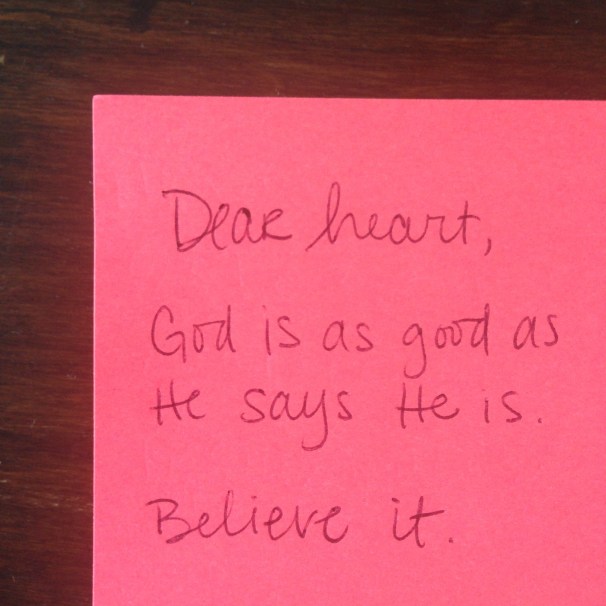 Dear heart,
God is as good as
He says He is.
Believe it.